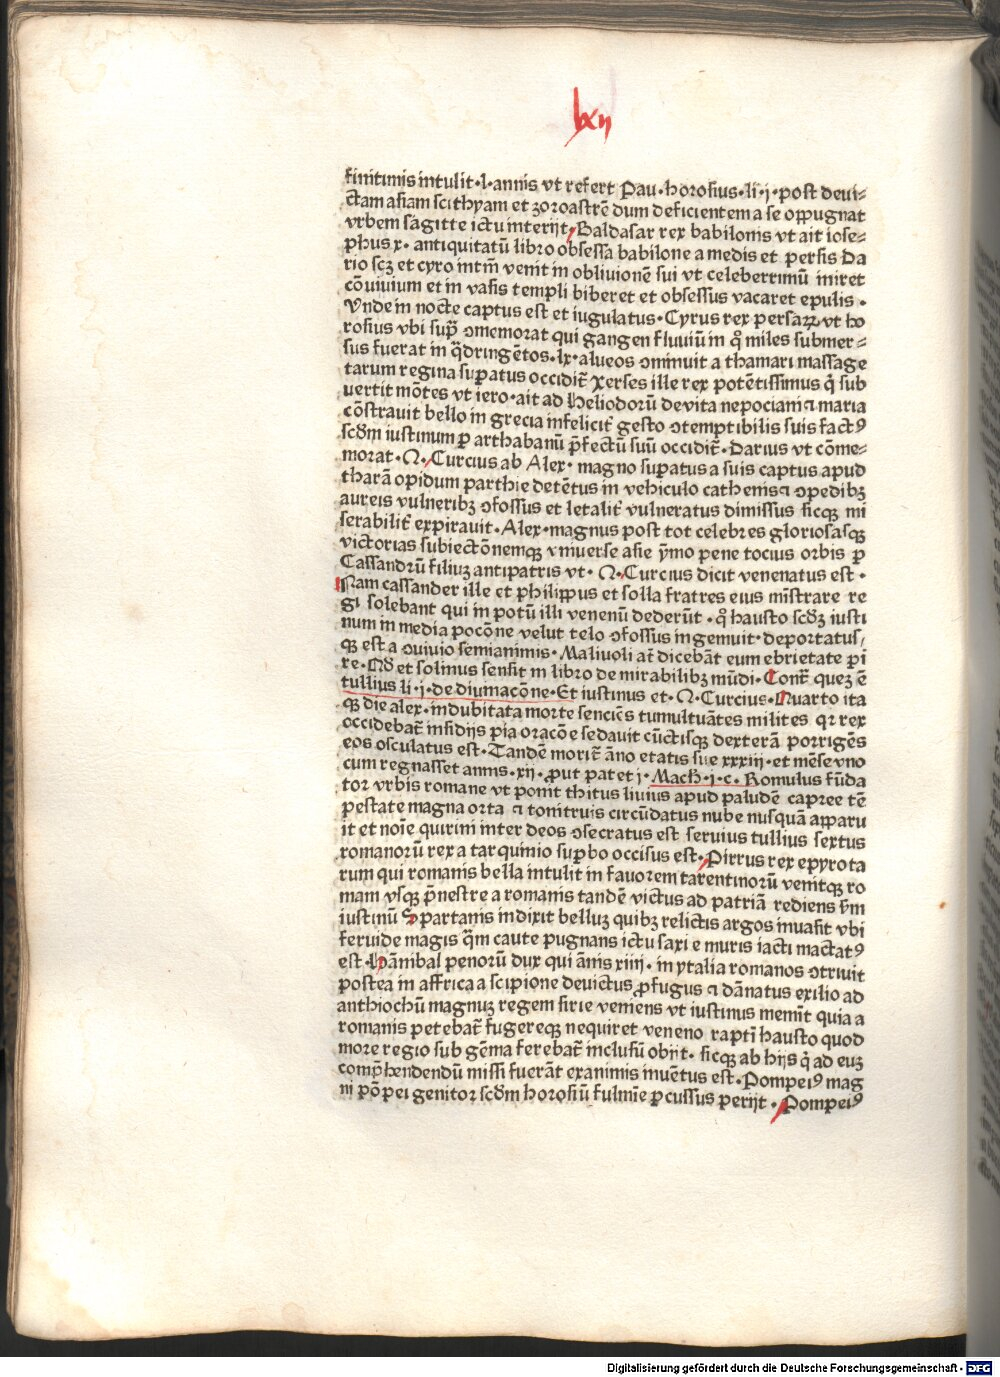 lxij
finitimis intulit·l·annis vt refert Pau·horosius·li·j·post deui⸗
ctam asiam scithyam et zoroastrē dum deficientem a se oꝑpugnat
vrbem sagitte ictu interijt·Baldasar rex babilonis vt ait iose⸗
phus x· antiquitatū libro obsessa babilone a medis et persis Da
rio scꝫ et cyro intm̄ venit in obliuionē sui vt celeberrimū iniret
cōuiuium et in vasis templi biberet et obsessus vacaret epulis·
Vnde in nocte captus est et iugulatus·Cyrus rex persaꝝ vt ho
rosius vbi sup̄ ꝯmemorat qui gangen fluuiū in q̊ miles submer⸗
sus fuerat in q̈dringētos·lx·alueos ꝯminuit a thamari massage
tarum regina suꝑatus occidit᷑ Xerses ille rex potētissimus q̇ sub
uertit mōtes vt iero·ait ad Heliodorū de vita nepociani ⁊ maria
cōstrauit bello in grecia infelicit᷑ gesto ꝯtemptibilis suis factꝰ
scḋm iustinum ꝑ arthabanū p̄fectū suū occidit᷑·Darius vt cōme⸗
morat·Q·Curcius ab Alex·magno suꝑatus a suis captus apud
tharā opidum parthie detētus in vehiculo cathenis ⁊ ꝯpedibꝫ
aureis vulneribꝫ ꝯfossus et letalit᷑ vulneratus dimissus sicqꝫ mi
serabilit᷑ expirauit·Alex·magnus post tot celebres gloriosasqꝫ
victorias subiectōnemqꝫ vniuerse asie ẏmo pene tocius orbis ꝑ
Cassandrū filiuꝫ antipatris vt·Q·Curcius dicit venenatus est·
Nam cassander ille et philippus et Iolla fratres eius mīstrare re
gi solebant qui in potū illi venenū dederūt·q̊ hausto scḋꝫ iusti
num in media pocōne velut telo ꝯfossus ingemuit·deportatus⸗
qꝫ est a ꝯuiuio semianimis·Maliuoli at̄ dicebāt eum ebrietate ꝑi
re·Qḋ et solinus sensit in libro de mirabilibꝫ mūdi·Cont᷑ queꝫ ē
tullius li·j·de diuinacōne·Et iustinus et·Q·Curcius·Quarto ita
qꝫ die alex·indubitata morte senciēs tumultuātes milites qꝛ rex
occidebat᷑ insidijs ꝑia oracōe sedauit cūctisqꝫ dexterā porrigēs
eos osculatus est·Tandē morit᷑ āno etatis sue xxxiij·et mēse vno
cum regnasset annis·xij·ꝓut patet j·Mach·j·c·Romulus fūda
tor vrbis romane vt ponit thitus liuius apud paludē capree tē
pestate magna orta ⁊ tonitruis circūdatus nube nusquā apparu
it et noīe quirini inter deos ꝯsecratus est seruius tullius sextus
romanorū rex a tarquinio suꝑbo occisus est·Pirrus rex epyrota
rum qui romanis bella intulit in fauorem tarentinorū venitqꝫ ro
mam vsqꝫ p̄nestre a romanis tandē victus ad patriā rediens ẜm
iustinū Spartanis indixit belluꝫ quibꝫ relictis argos inuasit vbi
feruide magis q̈m caute pugnans ictu saxi e muris iacti mactatꝰ
est·Hānibal penorū dux qui ānis xiiij·in ytalia romanos ꝯtriuit
postea in affrica a scipione deuictus ꝓfugus ⁊ dānatus exilio ad
anthiochū magnuꝫ regem sirie veniens vt iustinus memīt quia a
romanis petebat᷑ fugereqꝫ nequiret veneno raptī hausto quod
more regio sub gēma ferebat᷑ inclusū obijt·sicqꝫ ab hijs q̇ ad euꝫ
comp̄hendendū missi fuerāt exanimis inuētus est·Pompeiꝰ mag
ni pōpei genitor scḋm horosiū fulmīe ꝑcussus perijt·Pompeiꝰ
Digitalisierung gefördert durch die Deutsche Forschungsgemeinschaft - DFG